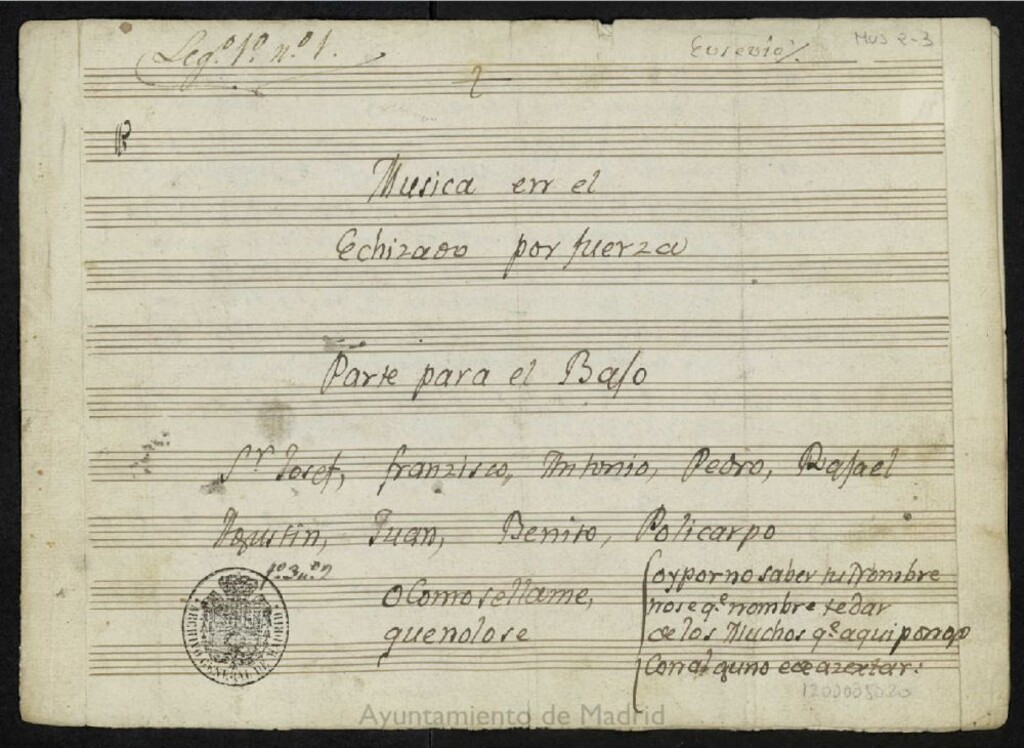 Leg.º 1º. nº 1.
2
Eusevio
Mus 2-3
Musica en el
Echizado por fuerza
Parte para el Baſo
Sr. Josef, franzisco, Antonio, Pedro, Rafael
Agustin, Juan, Benito, Policarpo
1º. 3 nº. 2
o Como se llame,
que no lo se
oy por no saver tu Nombre
no se q.e nombre te dar
de los Muchos q.e aqui pongo
Con alguno e de azertar:
ARCHIVO GENERAL DE MADRID
1200035020
Ayuntamiento de Madrid